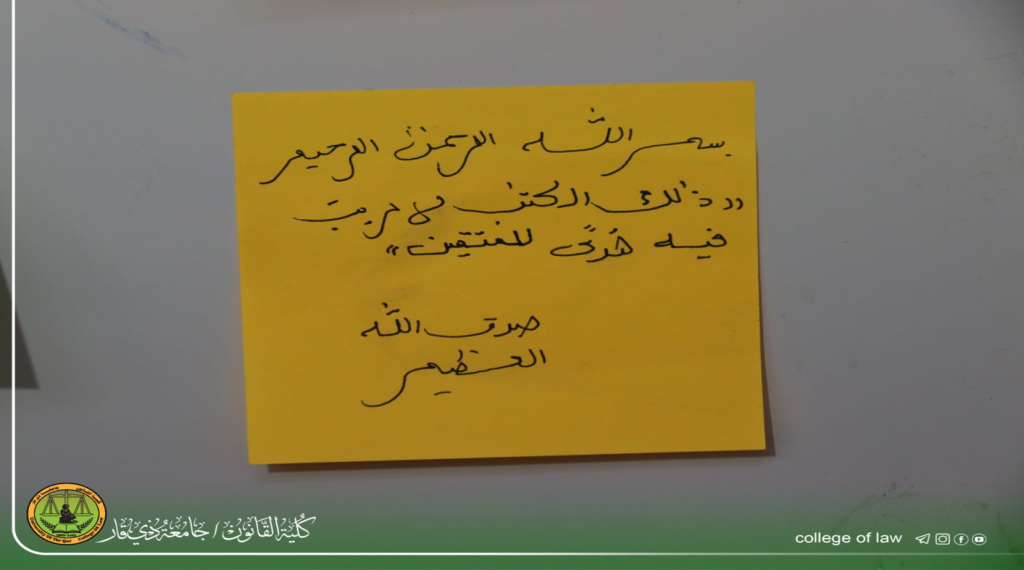 بسم اللّه الرحمن الرحيم
"ذلك الكتٰب لا ريبَ
فيه هُدًى للمتقين"
صدق اللّه
العظيم
كُلية القَانُون / جَامعةُ ذي قار
college of law